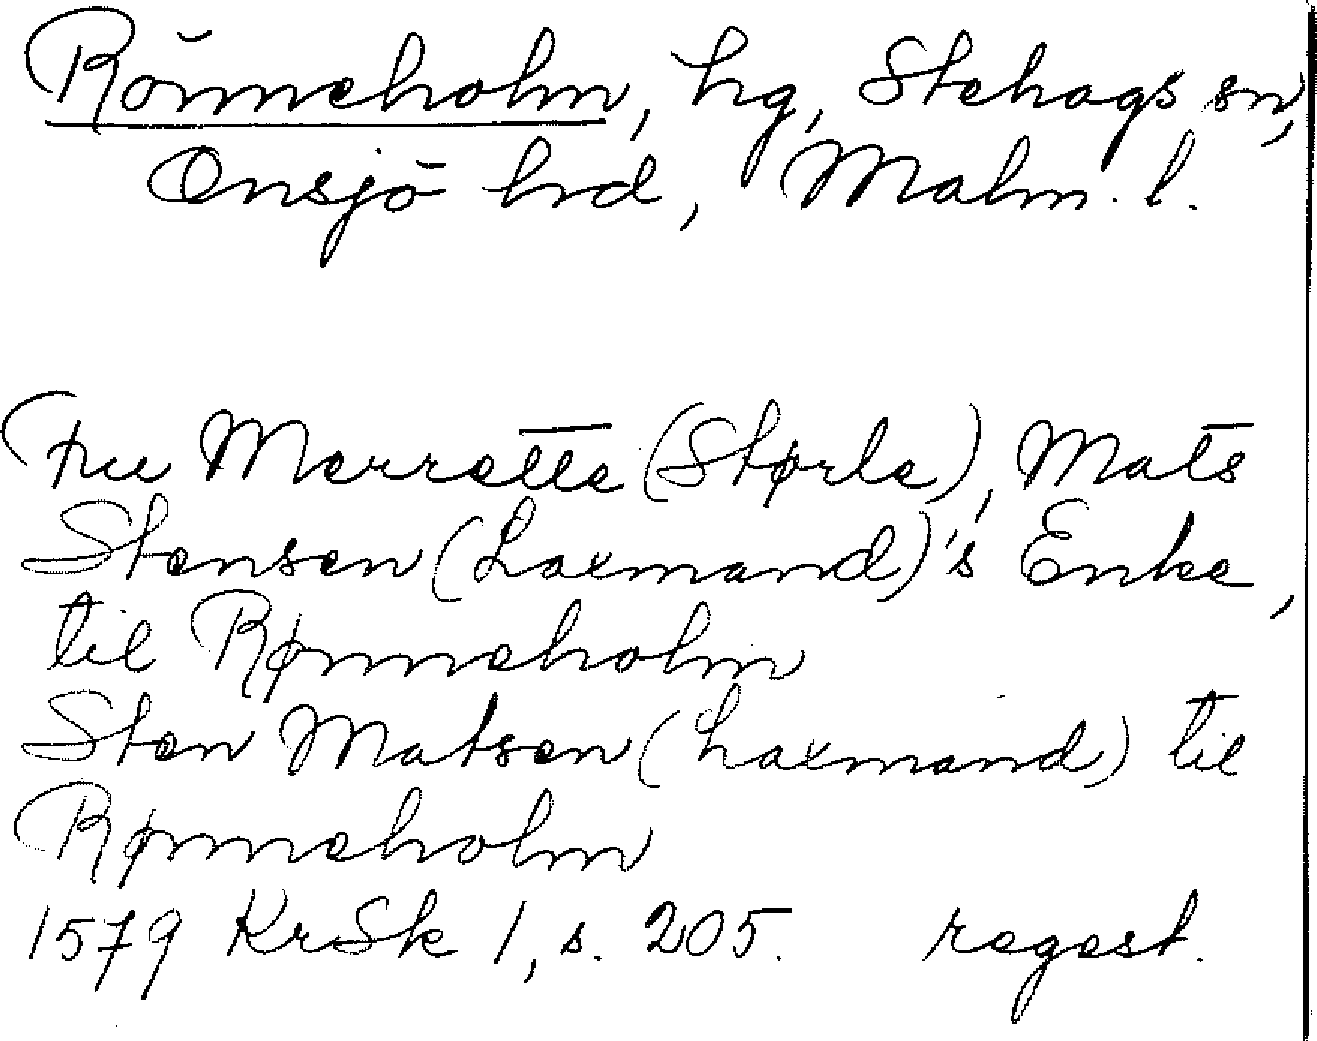 Rönneholm, hg, Stehags sn,
Onsjö hd, Malm. l.
Fru Merrette (Størle), Mats
Stensen (Laxmand)'s Enke,
til Rønneholm
Sten Matsen (Laxmand) til
Rønneholm
1579 KrSk 1, s. 205. regest.